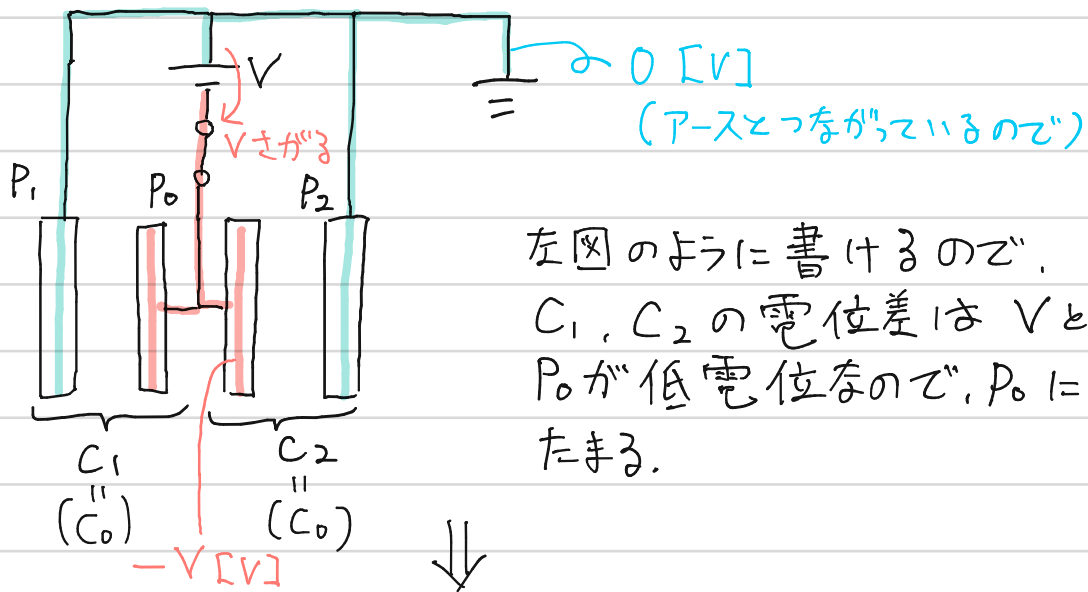 V
0 [V]
(アースとつながっているので)
Vさがる
P₁
P₀
P₂
左図のように書けるので,
C₁, C₂の電位差はVと
P₀が低電位なので, P₀に
たまる.
C₁
=
(C₀)
C₂
=
(C₀)
-V [V]